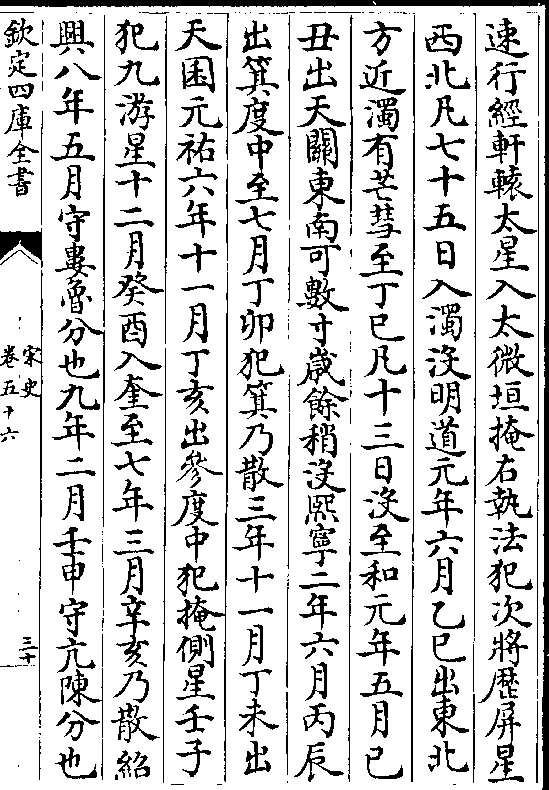 速行經軒轅太星入太微垣掩右執法犯次將歷屏星
西北凡七十五日入濁沒明道元年六月乙巳出東北
方近濁有芒彗至丁巳凡十三日沒至和元年五月己
丑出天關東南可數寸歲餘稍沒熙寧二年六月丙辰
出箕度中至七月丁卯犯箕乃散三年十一月丁未出
天囷元祐六年十一月丁亥出參度中犯掩側星壬子
犯九游星十二月癸酉入奎至七年三月辛亥乃散紹
興八年五月守婁魯分也九年二月壬申守亢陳分也
欽定四庫全書
宋史
卷五十六
三十